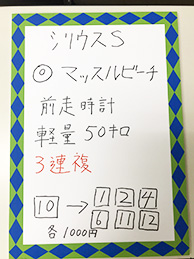 シリウスS
◎ マッスルビーチ
前走時計
軽量 50キロ
3連複
10 → 1 2 4
6 11 12
各1000円